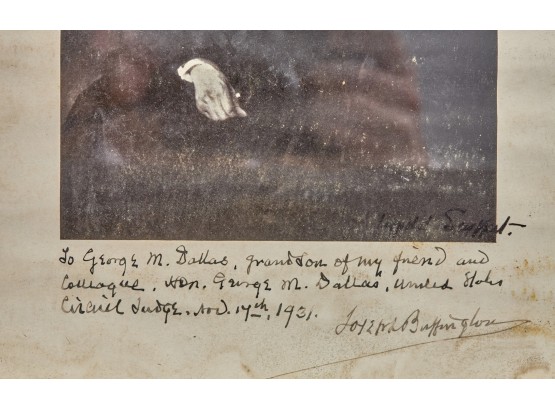 To George M. Dallas, grandson of my friend and
Colleague, Hon. George M. Dallas, United States
Circuit Judge. Nov. 17th, 1931.
Joseph Buffington